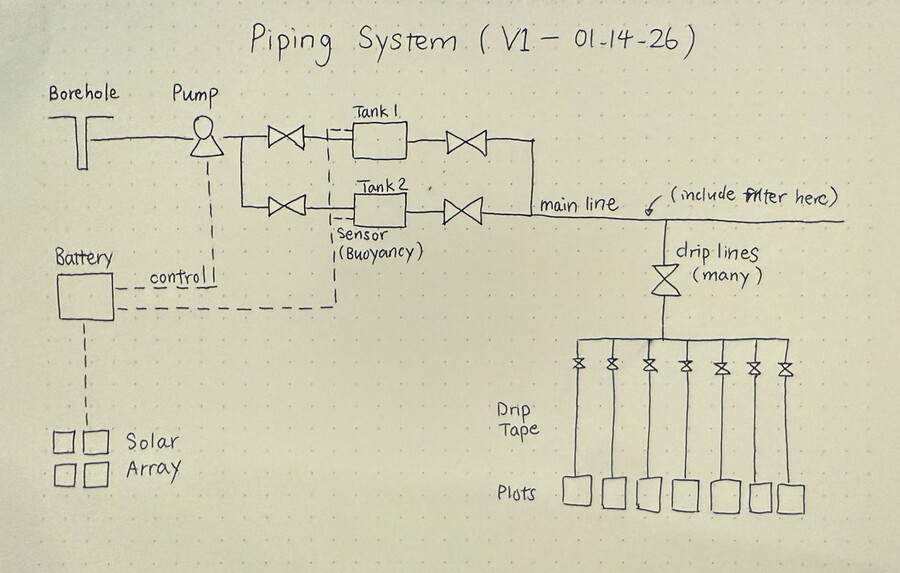 Piping System (V1 - 01-14-26)
Borehole
Pump
Tank 1
Tank 2
main line
(include filter here)
Sensor
(Buoyancy)
drip lines
(many)
Battery
control
Drip
Tape
Solar
Array
Plots